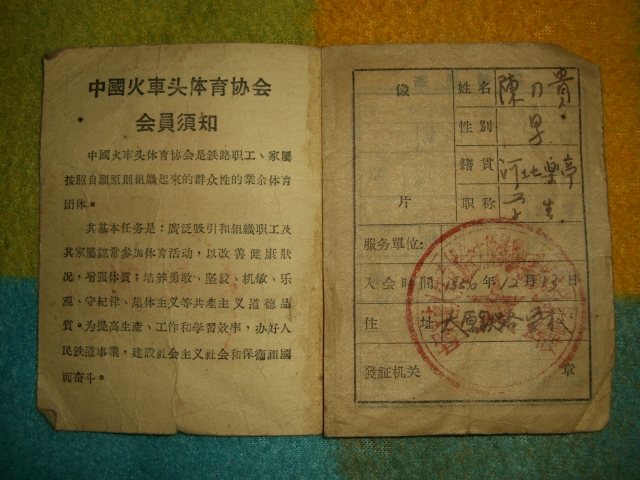 中國火車头体育协会
会員須知
中國火車头体育协会是鉄路职工、家屬
按照自願原則組織起來的群众性的業余体育
团体。
其基本任务是：廣泛吸引和組織职工及
其家屬經常参加体育活动，以改善健康狀
况，增强体質；培养勇敢、坚毅、机敏、乐
观、守紀律、集体主义等共產主义道德品
質。为提高生產、工作和学習效率，办好人
民鉄道事業，建設社会主义社会和保衛祖國
而奋斗。
像片
姓名 陳乃貴
性別 男
籍貫 河北樂亭
职称 学生
服务單位：
入会時間 1956年12月13日
住址 太原鉄路学校
發証机关 章